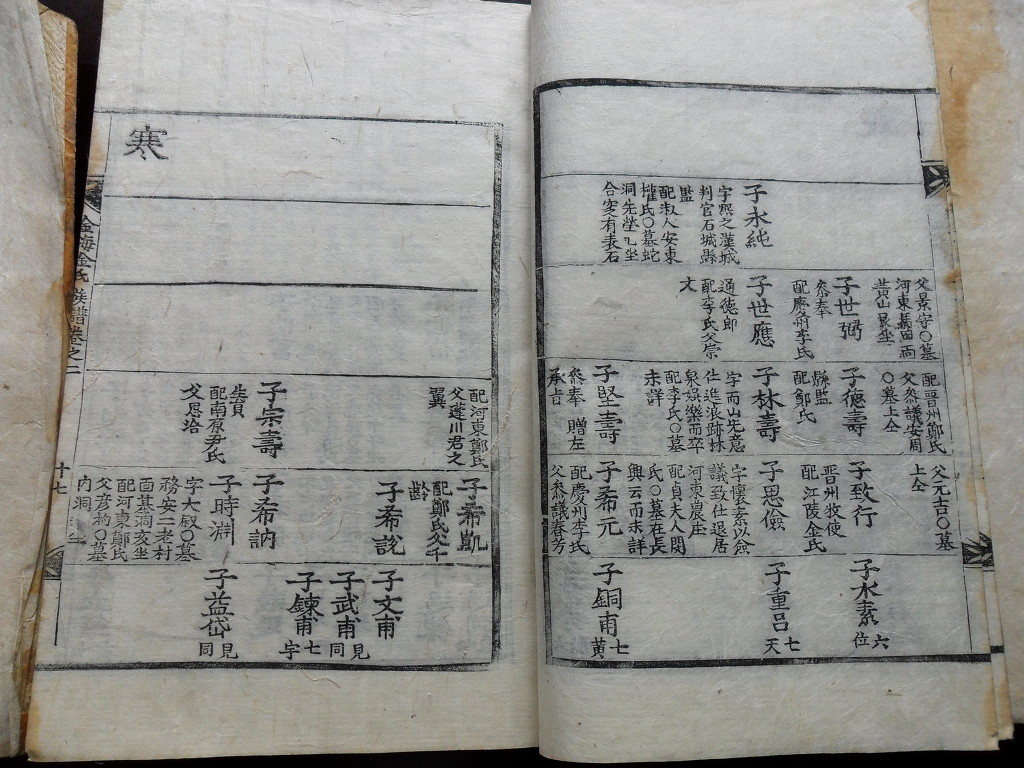 子永純
字熙之漢城
判官石城縣
監
配淑人安東
權氏○墓蛇
洞先塋
合窆有表石
父景守○墓
河東
黃山艮坐
子世弼
參奉
配慶州李氏
子世應
通德郎
配李氏父崇
文
配晋州鄭氏
父參議安周
○墓上仝
子德壽
縣監
配鄭氏
子林壽
字而山先意
仕進浪跡林
泉娛樂而卒
配李氏○墓
未詳
子堅壽
參奉 贈左
承旨
父元吉○墓
上仝
子致行
晋州牧使
配江陵金氏
子思儉
字懷素以僉
議致仕退居
河東農庄
配貞夫人閔
氏○墓在長
興云而未詳
子希元
配慶州李氏
父參議春芳
子水素
六
位
子重呂
七
天
子銅甫
七
黃
寒
配河東鄭氏
父蓬川君之
翼
子宗壽
生員
配南原尹氏
父思
子希凱
配鄭氏父千
齡
子希說
子希訥
子時淵
字大叔○墓
務安二老村
面基洞亥坐
配河東鄭氏
父彦豹○墓
内洞
子文甫
子武甫
見
同
子鍊甫
七
字
子益岱
見
同
金海金氏族譜卷之二
十七